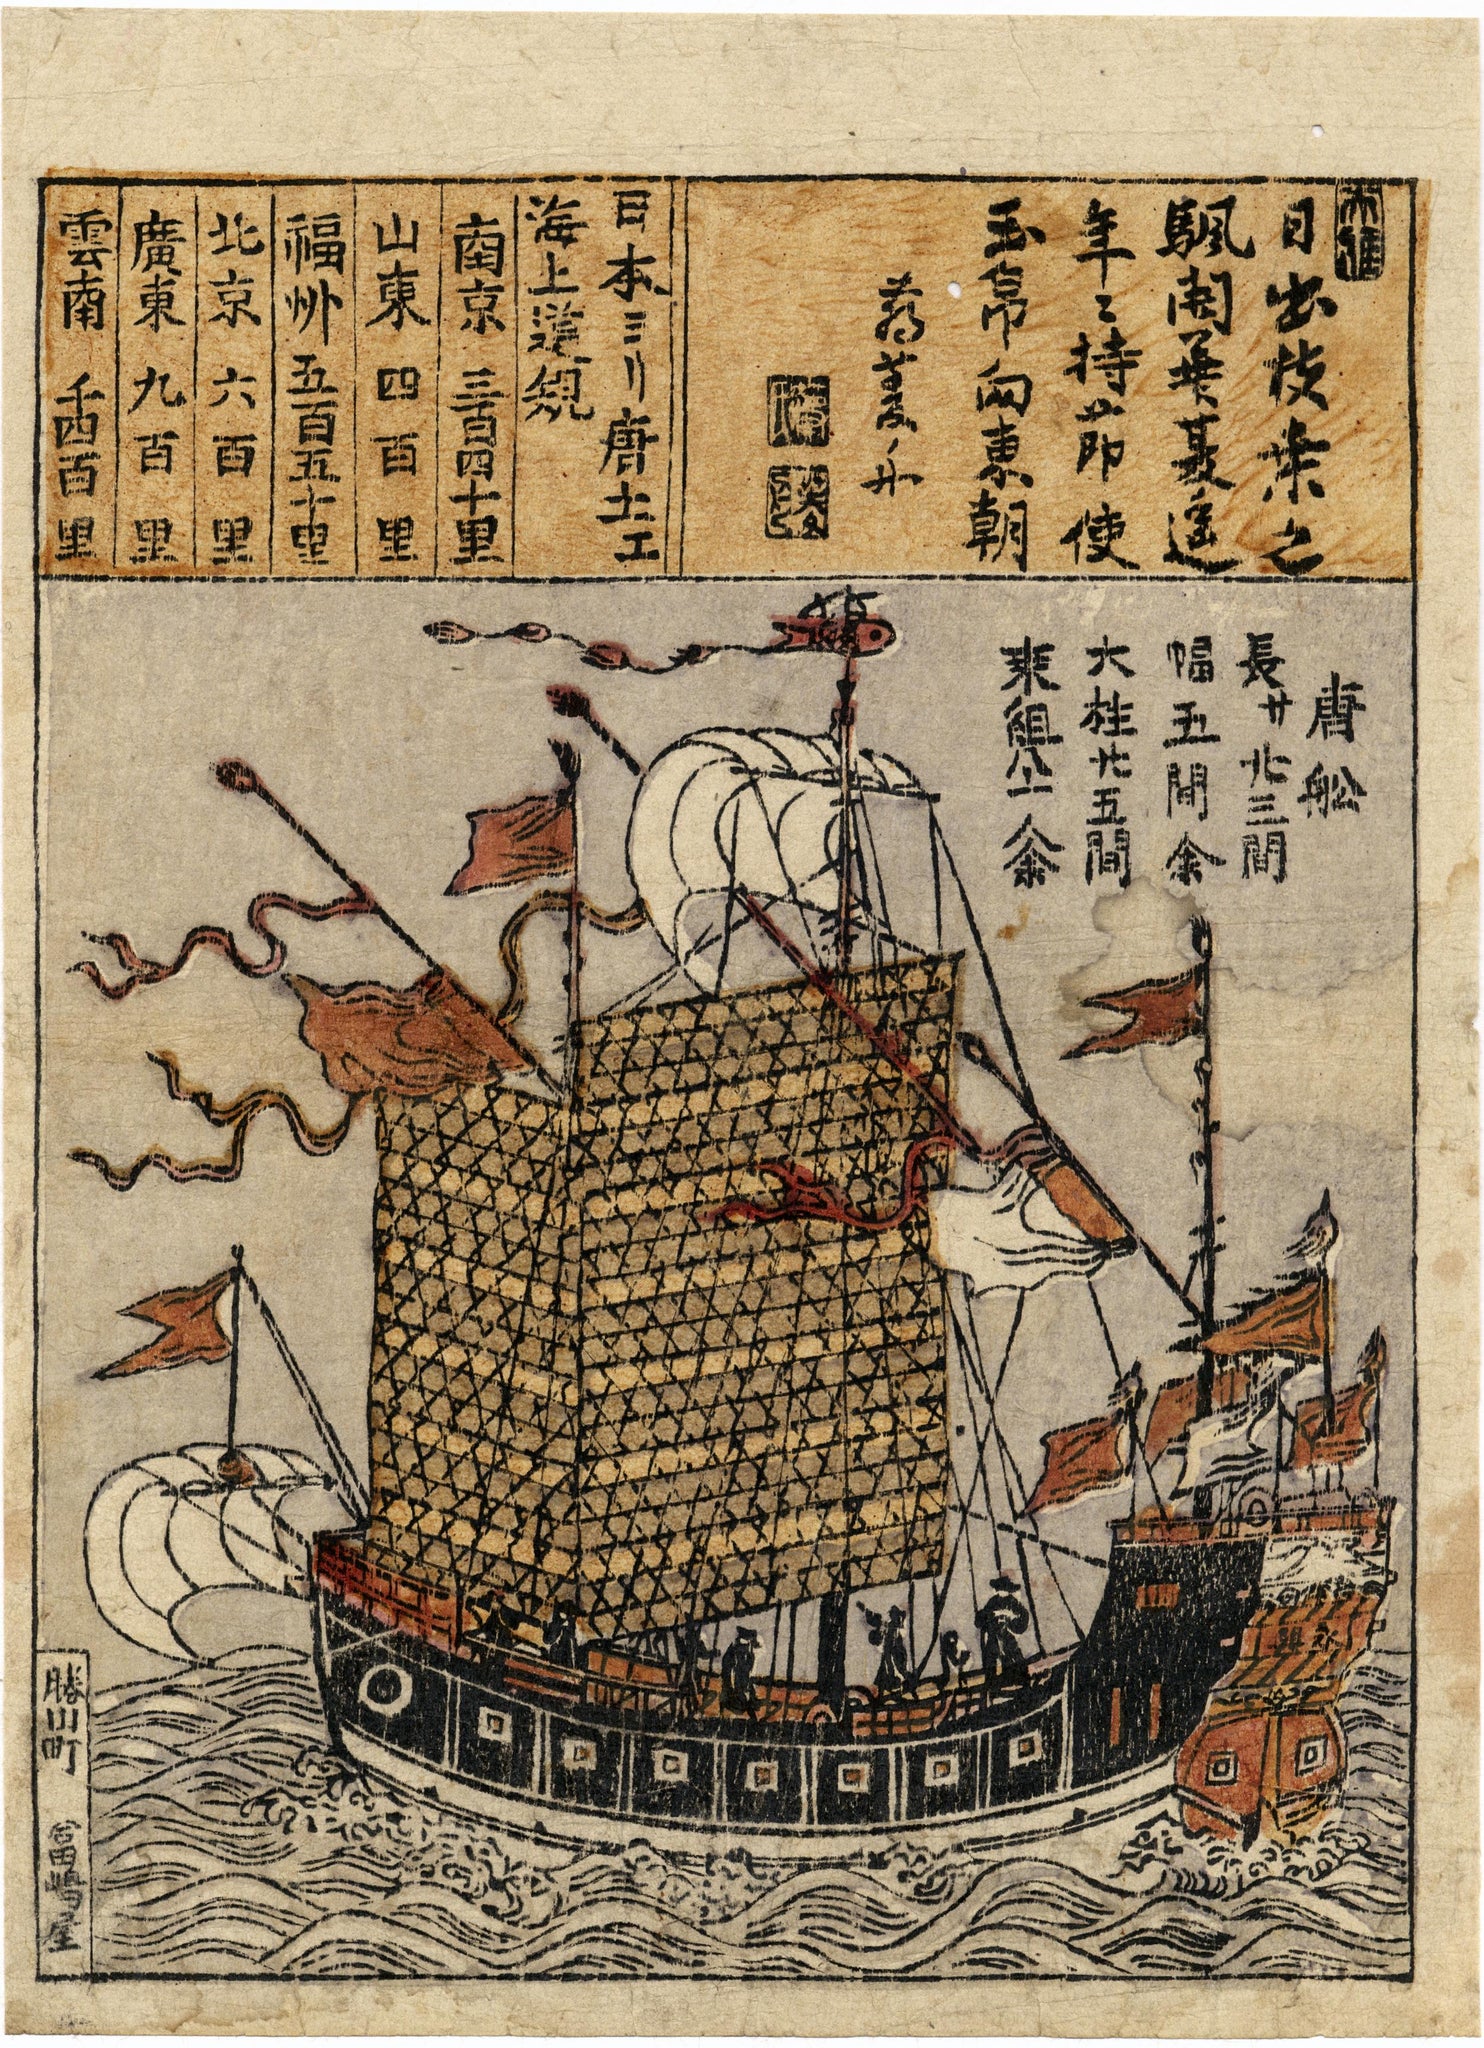 日出扶桒之
年々持節使
玉帛向東朝
日本ヨリ唐土エ
海上道規
南京 三百四十里
山東 四百里
福州 五百五十里
北京 六百里
廣東 九百里
雲南 千四百里
唐舩
長サ廿三間
幅五間余
大柱廿五間
乗組八十人余
勝山町 冨嶋屋